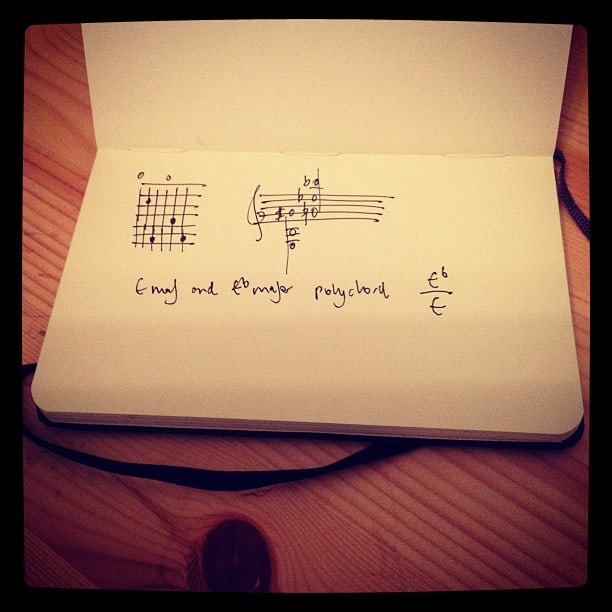 Emaj and Eb major polychord Eb/E